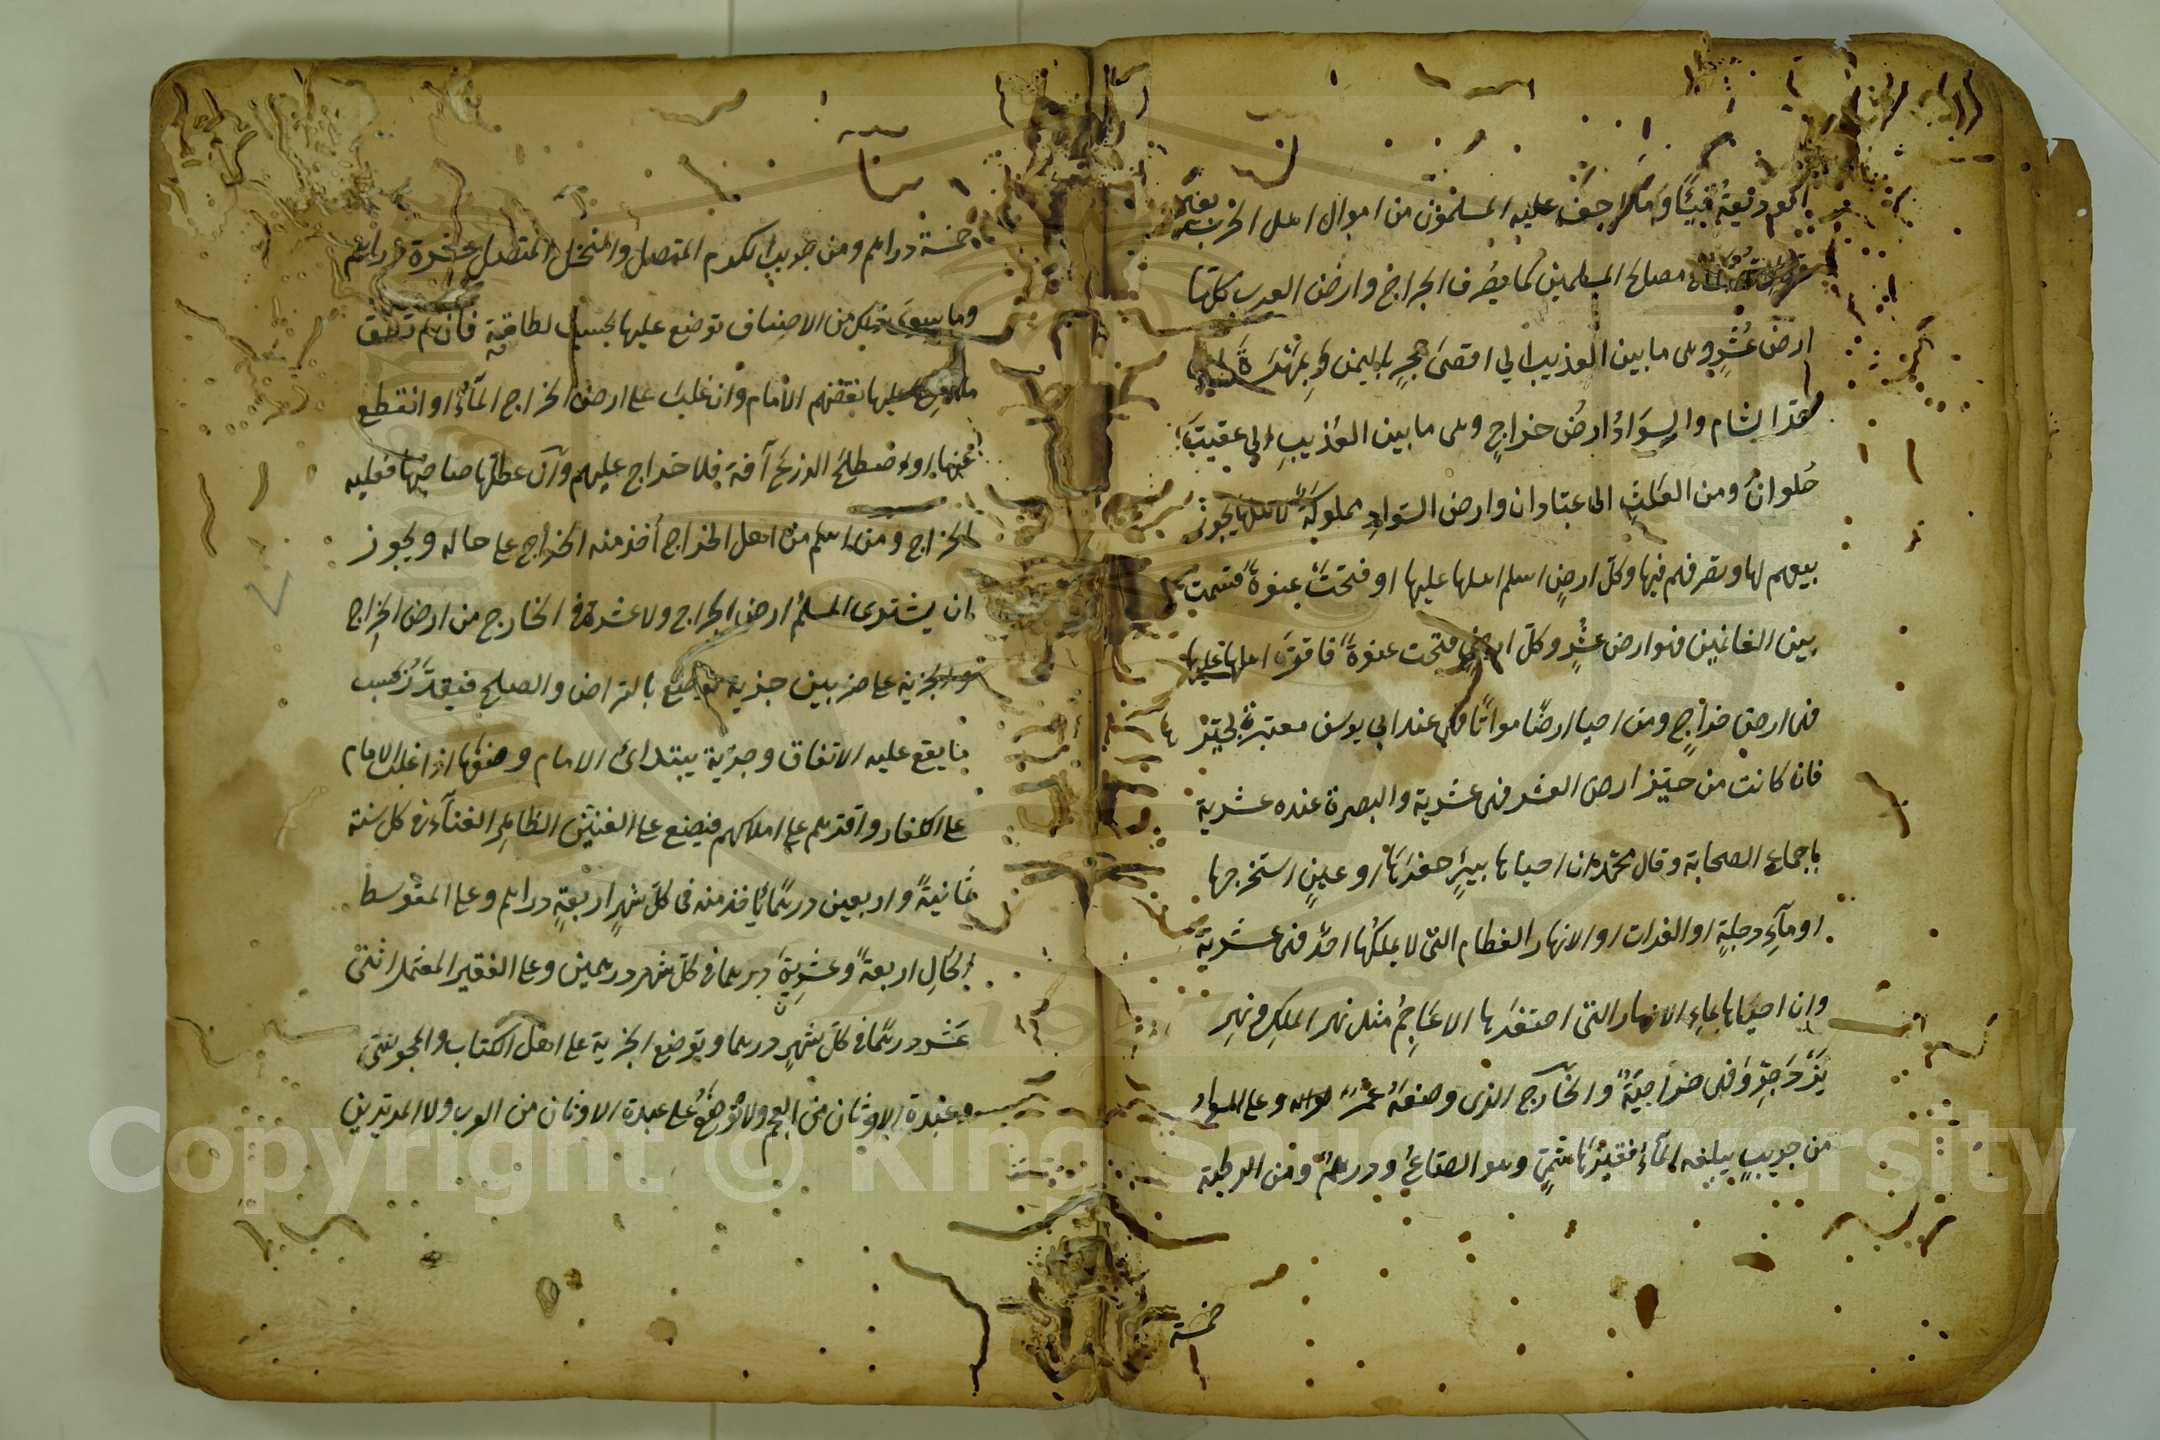 اموالهم ورقيقهم فيئا وما اوجف عليه المسلمون من اموال اهل الحرب بغير
قتال يصرف في مصالح المسلمين كما يصرف الخراج وارض العرب كلها
ارض عُشْرٍ وهى ما بين العذيب الي اقصىَ حجرٍ باليمن وبِمَهْرَةَ الي
حد الشام والسوادُ ارضُ خراجٍ وهى ما بين العذيبِ الي عقبَة
حُلوان ومن العَلثِ الى عبّادان وارض السّوادِ مملوكةٌ لاهلها يجوز
بيعهم لها وتصرفهم فيها وكل ارضٍ اسلم اهلها عليها او فتحَتْ عنوةً وقسمت
بين الغانمين فهو ارض عشْرٍ وكل ارضٍ فتحت عنوةً فاقرّ اهلها عليها
فهى ارض خراجٍ ومن احيا ارضًا مواتًا فهى عند ابي يوسف معتبرة بحيّزها
فان كانت من حيّز ارض العشر فهى عشرية والبصرة عنده عشرية
باجماع الصحابة وقال محمّد ان احياها ببيرٍ حفرَها او عينٍ استخرجها
او مآءِ دجلةٍ او الفرات او الانهار العظام التى لا يملكُها احدٌ فهى عشرية
وان احياها بماءِ الانهار التى احتفرَها الاعَاجِمُ مثل نهر الملِكِ ونهرِ
يَزْدَجِرْدَ فهى خراجيّةٌ والخراج الذى وضعَهُ عُمَرُ على اهل السواد
من جريبٍ يبلغه المآءُ قفيزٌ هاشمىٌّ وهو الصّاعُ ودرهمٌ ومن الرطبة
خمسة
خمسة دراهم ومن جريب الكرم المتصل والنخل المتصل عشرة دراهم
وما سِوَى ذلك من الاصناف توضع عليها بحسب الطاقة فان لم تطق
ما وضع عليها نقصهم الامام وان غلبَ على ارض الخراج المآءُ او انقطع
عنها او اصطلم الزرعَ آفة فلا خراج عليهم وان عطّلها صاحبها فعليه
الخراج ومن اسلم من اهل الخراج أخذ منه الخراج على حاله ويجوز
ان يشترى المسلم ارض الخراج ولا عشر في الخارج من ارض الخراج
والجزية على ضربين جزية توضع بالتراض والصلح فيقدَّرُ بحسب
ما يقع عليه الاتفاق وجزية يبتدئ الامام وضعَها اذا غلب الامام
على الكفار واقرّهم على املاكهم فيضع على الغنيّ الظاهرِ الغنآءِ في كل سنة
ثمانيةً واربعين درهمًا يأخذ منه في كلّ شهرٍ اربعةٍ دراهم وعلى المتوسط
الحالِ اربعةً وعشرينَ درهما في كلّ شهر درهمين وعلى الفقير المعتمل اثنى
عَشَر درهمًا في كلّ شهرٍ درهما وتوضع الجزية على اهل الكتاب والمجوسِ
وعبدة الاوثان من العجم ولا توضعُ على عبدة الاوثان من العرب ولا المرتدين